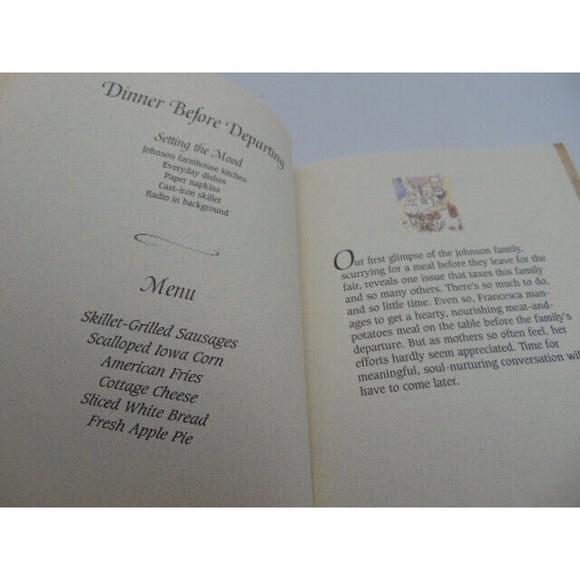 Dinner Before Departing
Setting the Mood
Johnson farmhouse kitchen
Everyday dishes
Paper napkins
Cast-iron skillet
Radio in background
Menu
Skillet-Grilled Sausages
Scalloped Iowa Corn
American Fries
Cottage Cheese
Sliced White Bread
Fresh Apple Pie
Our first glimpse of the Johnson family,
scurrying for a meal before they leave for the
fair, reveals one issue that taxes this family
and so many others. There's so much to do,
and so little time. Even so, Francesca man-
ages to get a hearty, nourishing meat-and-
potatoes meal on the table before the family's
departure. But as mothers so often feel, her
efforts hardly seem appreciated. Time for
meaningful, soul-nurturing conversation will
have to come later.